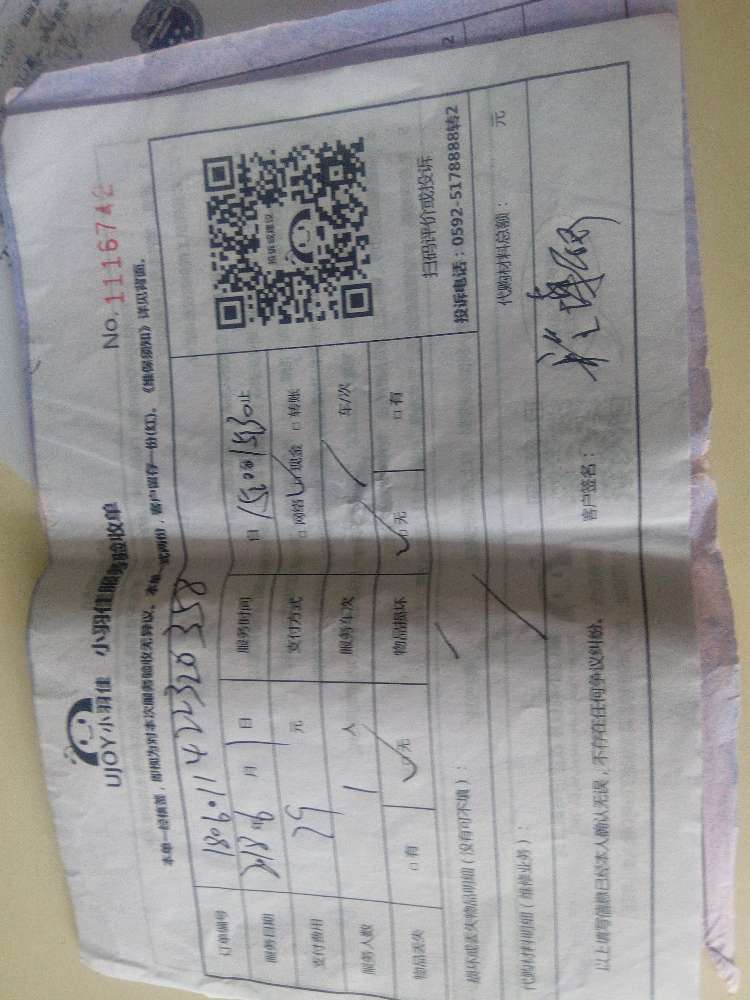 UJOY小羽佳 小羽佳服务验收单 No.1116742
本单一经核签，即视为对本次服务验收无异议。本单一式两份，客户留存一份(红)。《维保须知》详见背面。
订单编号 1806011422320358
服务日期 2018年6月1日 服务时间 日 1500 1530止
支付费用 元 支付方式 □网络 现金 □转账
服务人数 1 人 服务车次 车/次
物品丢失 □有 无 物品损坏 □无 □有
投诉或建议
扫码评价或投诉
投诉电话：0592-5178888转2
损坏或丢失物品明细（没有可不填）：
代购材料明细（维修业务）： 代购材料总额： 元
以上填写信息已经本人确认无误，不存在任何争议纠纷。 客户签名：